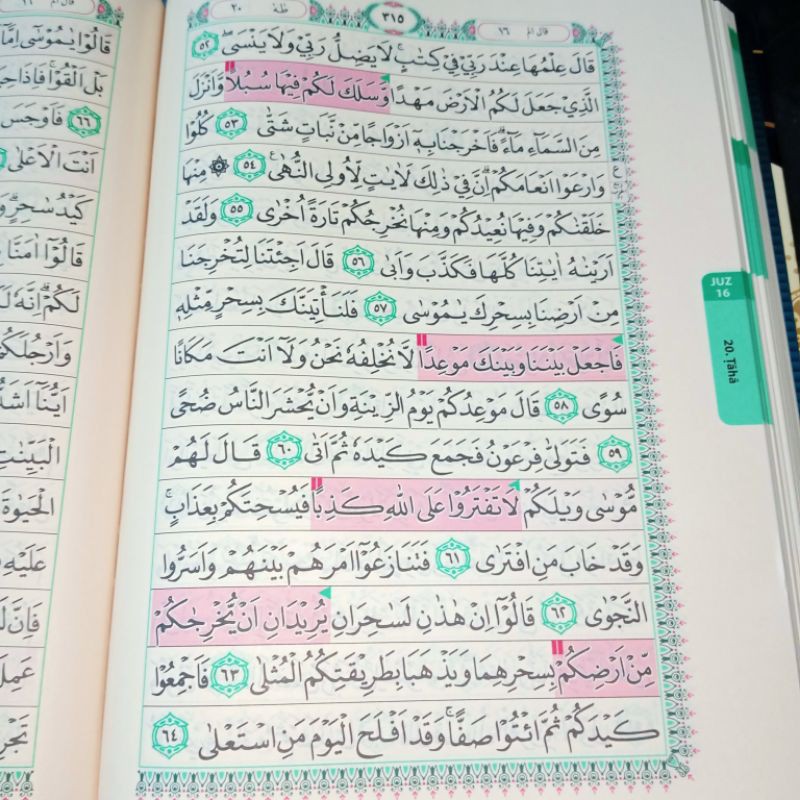 طٰهٰ ٢٠
٣١٥
قال الم ١٦
قَالَ عِلْمُهَا عِنْدَ رَبِّيْ فِيْ كِتٰبٍۚ لَا يَضِلُّ رَبِّيْ وَلَا يَنْسَىۖ ٥٢
الَّذِيْ جَعَلَ لَكُمُ الْاَرْضَ مَهْدًا وَّسَلَكَ لَكُمْ فِيْهَا سُبُلًا وَّاَنْزَلَ
مِنَ السَّمَاۤءِ مَاۤءًۗ فَاَخْرَجْنَا بِهٖٓ اَزْوَاجًا مِّنْ نَّبَاتٍ شَتّٰى ٥٣ كُلُوْا
وَارْعَوْا اَنْعَامَكُمْۗ اِنَّ فِيْ ذٰلِكَ لَاٰيٰتٍ لِّاُولِى النُّهٰى ࣖ ٥٤ ۞ مِنْهَا
خَلَقْنٰكُمْ وَفِيْهَا نُعِيْدُكُمْ وَمِنْهَا نُخْرِجُكُمْ تَارَةً اُخْرٰى ٥٥ وَلَقَدْ
اَرَيْنٰهُ اٰيٰتِنَا كُلَّهَا فَكَذَّبَ وَاَبٰى ٥٦ قَالَ اَجِئْتَنَا لِتُخْرِجَنَا
مِنْ اَرْضِنَا بِسِحْرِكَ يٰمُوْسٰى ٥٧ فَلَنَأْتِيَنَّكَ بِسِحْرٍ مِّثْلِهٖ
فَاجْعَلْ بَيْنَنَا وَبَيْنَكَ مَوْعِدًا لَّا نُخْلِفُهٗ نَحْنُ وَلَآ اَنْتَ مَكَانًا
سُوًى ٥٨ قَالَ مَوْعِدُكُمْ يَوْمُ الزِّيْنَةِ وَاَنْ يُّحْشَرَ النَّاسُ ضُحًى
٥٩ فَتَوَلّٰى فِرْعَوْنُ فَجَمَعَ كَيْدَهٗ ثُمَّ اَتٰى ٦٠ قَالَ لَهُمْ
مُّوْسٰى وَيْلَكُمْ لَا تَفْتَرُوْا عَلَى اللّٰهِ كَذِبًا فَيُسْحِتَكُمْ بِعَذَابٍۚ
وَقَدْ خَابَ مَنِ افْتَرٰى ٦١ فَتَنَازَعُوْٓا اَمْرَهُمْ بَيْنَهُمْ وَاَسَرُّوا
النَّجْوٰى ٦٢ قَالُوْٓا اِنْ هٰذٰنِ لَسٰحِرٰنِ يُرِيْدٰنِ اَنْ يُّخْرِجٰكُمْ
مِّنْ اَرْضِكُمْ بِسِحْرِهِمَا وَيَذْهَبَا بِطَرِيْقَتِكُمُ الْمُثْلٰى ٦٣ فَاَجْمِعُوْا
كَيْدَكُمْ ثُمَّ ائْتُوْا صَفًّاۚ وَقَدْ اَفْلَحَ الْيَوْمَ مَنِ اسْتَعْلٰى ٦٤
JUZ
16
20. Ṭāhā
قَالُوْا يٰمُوْسٰٓى اِمَّا
بَلْ اَلْقُوْاۚ فَاِذَا
٦٦ فَاَوْجَسَ
اَنْتَ الْاَعْلٰى
كَيْدُ سٰحِرٍۗ
قَالُوْٓا اٰمَنَّا
لَكُمْۗ اِنَّهٗ
وَاَرْجُلَكُمْ
اَيُّنَآ اَشَدُّ
الْبَيِّنٰتِ
الْحَيٰوةَ
عَلَيْهِ
فَاِنَّ